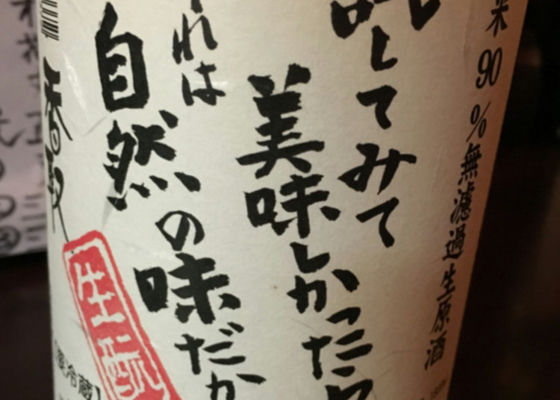 米90%無濾過生原酒
試してみて
美味しかったら
れは
自然の味だか
香取
生酛
要冷蔵